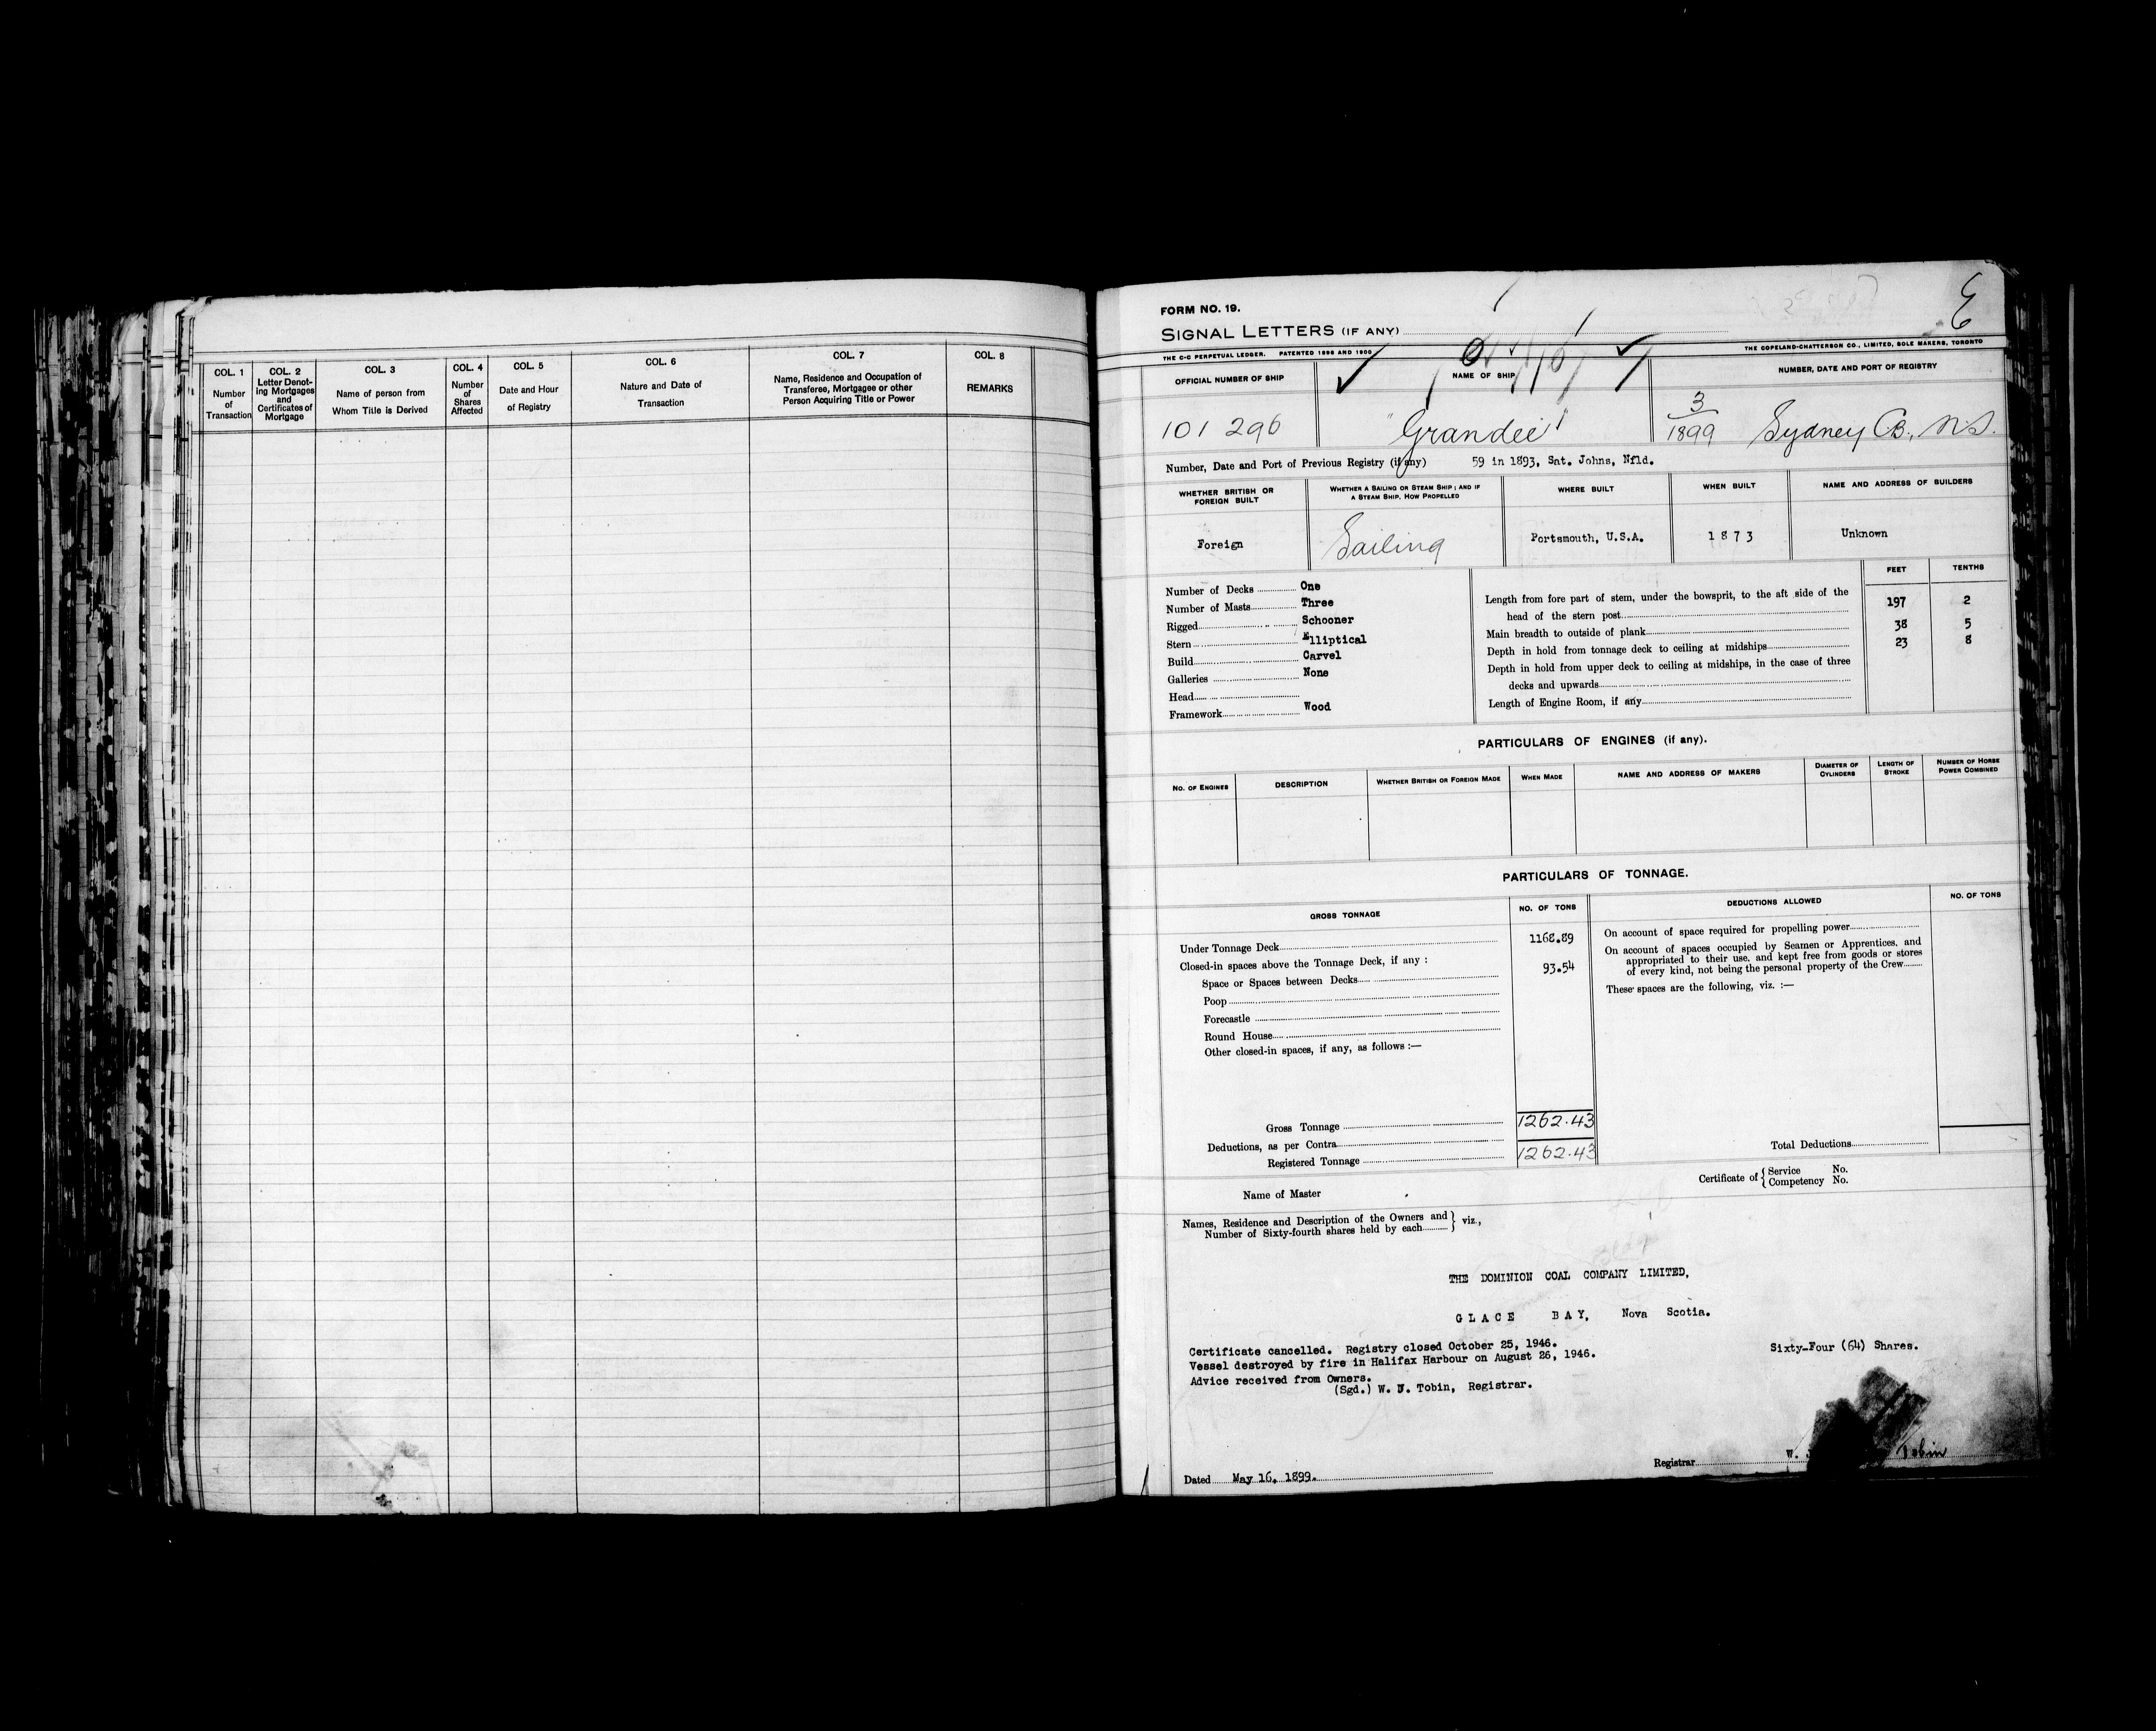 COL. 1
Number
of
Transaction
COL. 2
Letter Denot-
ing Mortgages
and
Certificates of
Mortgage
COL. 3
Name of person from
Whom Title is Derived
COL. 4
Number
of
Shares
Affected
COL. 5
Date and Hour
of Registry
COL. 6
Nature and Date of
Transaction
COL. 7
Name, Residence and Occupation of
Transferee, Mortgagee or other
Person Acquiring Title or Power
COL. 8
REMARKS
FORM NO. 19.
SIGNAL LETTERS (IF ANY)
THE C-C PERPETUAL LEDGER. PATENTED 1898 AND 1900
THE COPELAND-CHATTERSON CO., LIMITED, SOLE MAKERS, TORONTO
OFFICIAL NUMBER OF SHIP
NAME OF SHIP
NUMBER, DATE AND PORT OF REGISTRY
101 296
"Grandee"
3
1899
Sydney C.B., N.S.
Number, Date and Port of Previous Registry (if any) 59 in 1893, Sat. Johns, Nfld.
WHETHER BRITISH OR
FOREIGN BUILT
WHETHER A SAILING OR STEAM SHIP; AND IF
A STEAM SHIP, HOW PROPELLED
WHERE BUILT
WHEN BUILT
NAME AND ADDRESS OF BUILDERS
Foreign
Sailing
Portsmouth, U.S.A.
1873
Unknown
Number of Decks One
Number of Masts Three
Rigged Schooner
Stern Elliptical
Build Carvel
Galleries None
Head
Framework Wood
FEET TENTHS
Length from fore part of stem, under the bowsprit, to the aft side of the
head of the stern post 197 2
Main breadth to outside of plank 38 5
Depth in hold from tonnage deck to ceiling at midships 23 8
Depth in hold from upper deck to ceiling at midships, in the case of three
decks and upwards
Length of Engine Room, if any
PARTICULARS OF ENGINES (if any).
NO. OF ENGINES
DESCRIPTION
WHETHER BRITISH OR FOREIGN MADE
WHEN MADE
NAME AND ADDRESS OF MAKERS
DIAMETER OF
CYLINDERS
LENGTH OF
STROKE
NUMBER OF HORSE
POWER COMBINED
PARTICULARS OF TONNAGE.
GROSS TONNAGE
NO. OF TONS
DEDUCTIONS ALLOWED
NO. OF TONS
Under Tonnage Deck 1168.89
Closed-in spaces above the Tonnage Deck, if any :
93.54
Space or Spaces between Decks
Poop
Forecastle
Round House
Other closed-in spaces, if any, as follows :—
On account of space required for propelling power
On account of spaces occupied by Seamen or Apprentices, and
appropriated to their use, and kept free from goods or stores
of every kind, not being the personal property of the Crew
These spaces are the following, viz. :—
Gross Tonnage 1262.43
Deductions, as per Contra
Registered Tonnage 1262.43
Total Deductions
Name of Master
Certificate of { Service No.
{ Competency No.
Names, Residence and Description of the Owners and } viz.,
Number of Sixty-fourth shares held by each
THE DOMINION COAL COMPANY LIMITED,
GLACE BAY, Nova Scotia.
Certificate cancelled. Registry closed October 25, 1946.
Vessel destroyed by fire in Halifax Harbour on August 26, 1946.
Advice received from Owners.
(Sgd.) W. J. Tobin, Registrar.
Sixty-Four (64) Shares.
Dated May 16, 1899.
Registrar W. J Tobin